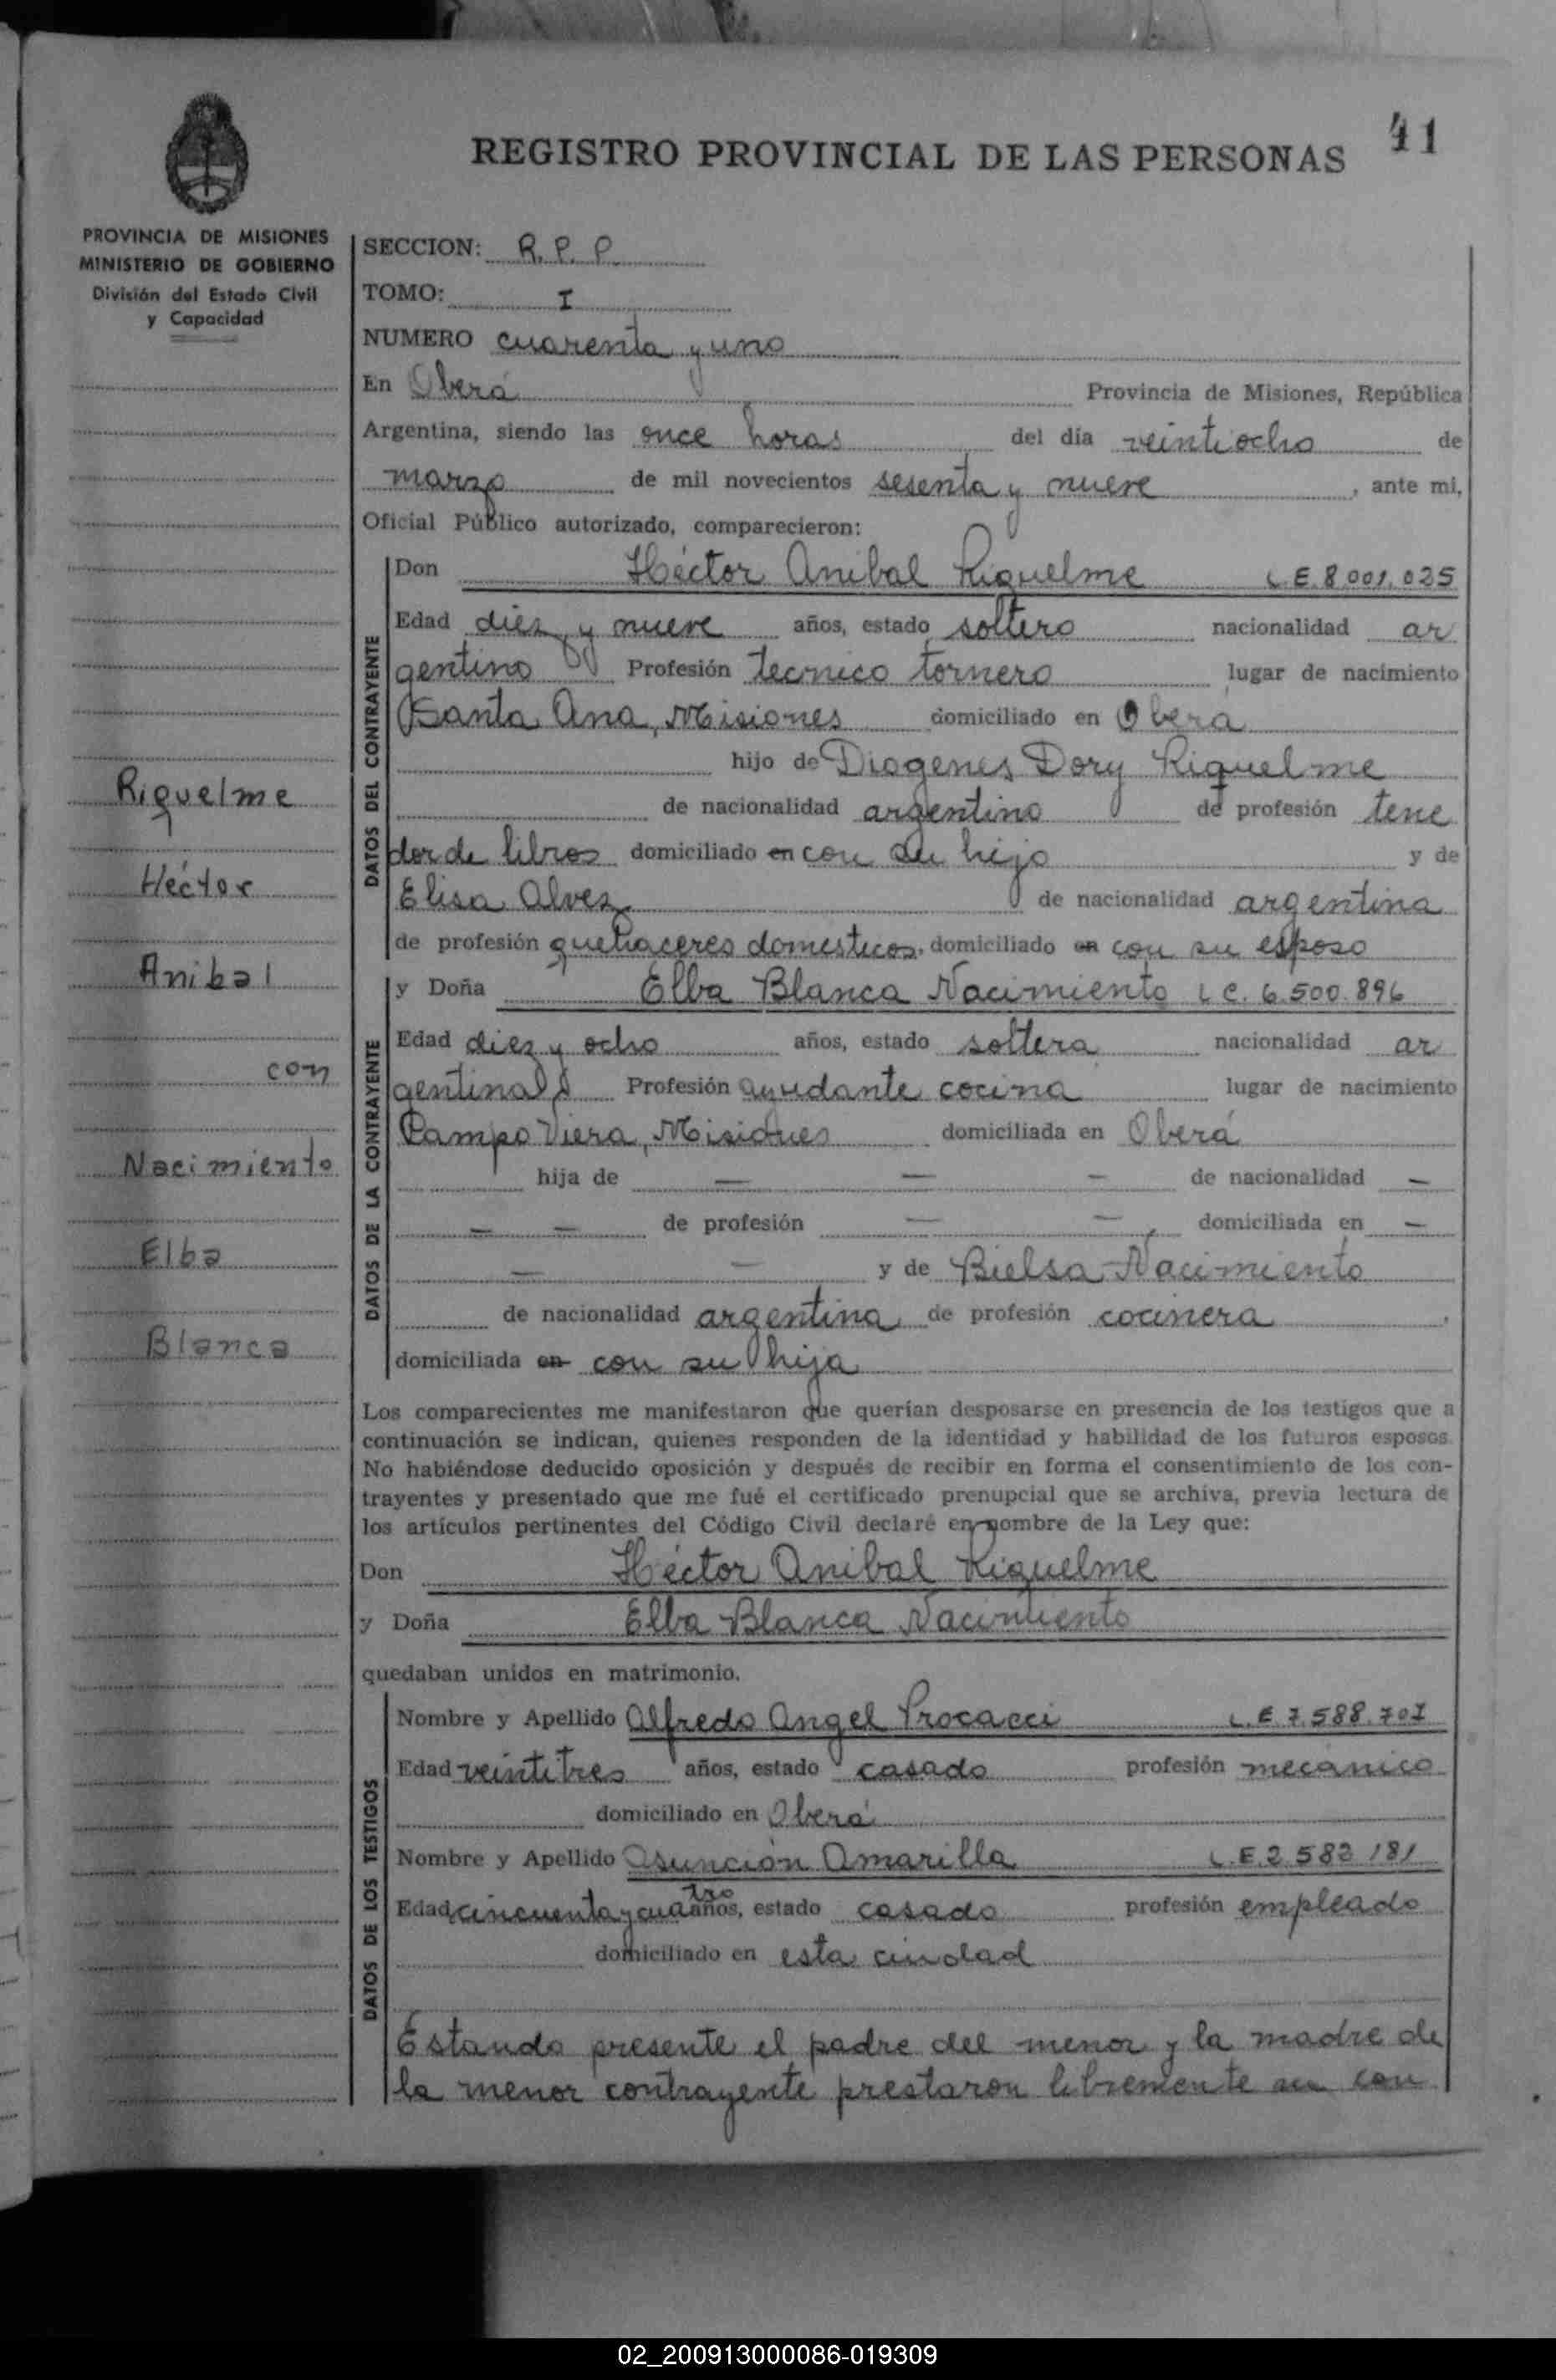 41
REGISTRO PROVINCIAL DE LAS PERSONAS
PROVINCIA DE MISIONES
MINISTERIO DE GOBIERNO
División del Estado Civil
y Capacidad
Riquelme
Héctor
Anibal
con
Nacimiento
Elba
Blanca
SECCION: R. P. P.
TOMO: I
NUMERO cuarenta y uno
En Oberá Provincia de Misiones, República
Argentina, siendo las once horas del día veintiocho de
marzo de mil novecientos sesenta y nueve, ante mi,
Oficial Público autorizado, comparecieron:
DATOS DEL CONTRAYENTE
Don Héctor Anibal Riquelme L.E. 8.001.025
Edad diez y nueve años, estado soltero nacionalidad ar
gentino Profesión tecnico tornero lugar de nacimiento
Santa Ana, Misiones domiciliado en Obera
hijo de Diogenes Dory Riquelme
de nacionalidad argentino de profesión tene
dor de libros domiciliado en con su hijo y de
Elisa Alvez de nacionalidad argentina
de profesión quehaceres domesticos, domiciliado en con su esposo
DATOS DE LA CONTRAYENTE
y Doña Elba Blanca Nacimiento L C. 6.500.896
Edad diez y ocho años, estado soltera nacionalidad ar
gentina Profesión ayudante cocina lugar de nacimiento
Campo Viera, Misiones domiciliada en Oberá
hija de — — — de nacionalidad —
— — de profesión — — domiciliada en —
— — y de Bielsa Nacimiento
de nacionalidad argentina de profesión cocinera
domiciliada en con su hija
Los comparecientes me manifestaron que querían desposarse en presencia de los testigos que a
continuación se indican, quienes responden de la identidad y habilidad de los futuros esposos.
No habiéndose deducido oposición y después de recibir en forma el consentimiento de los con-
trayentes y presentado que me fué el certificado prenupcial que se archiva, previa lectura de
los artículos pertinentes del Código Civil declaré en nombre de la Ley que:
Don Héctor Anibal Riquelme
y Doña Elba Blanca Nacimiento
quedaban unidos en matrimonio.
DATOS DE LOS TESTIGOS
Nombre y Apellido Alfredo Angel Procacci L.E. 7.588.707
Edad veintitres años, estado casado profesión mecanico
domiciliado en Oberá
Nombre y Apellido Asunción Amarilla L.E. 2 582 181
Edad cincuenta y cuatro años, estado casado profesión empleado
domiciliado en esta ciudad
Estando presente el padre del menor y la madre de
la menor contrayente prestaron libremente su con
02_200913000086-019309